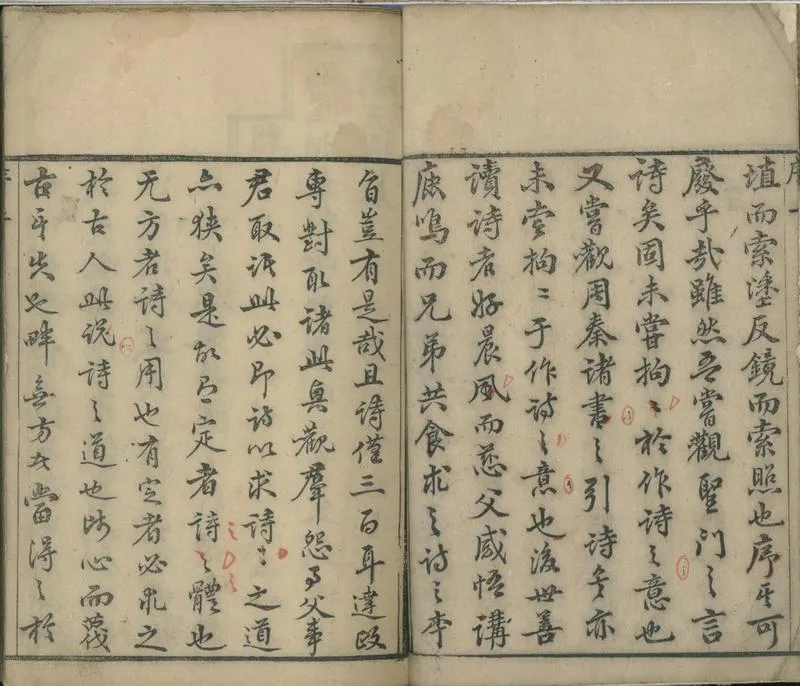 序
埴而索塗反鏡而索照也序其可
廢乎哉雖然吾嘗觀聖門之言
詩矣固未嘗拘〻於作詩之意也
又嘗觀周秦諸書之引詩矣亦
未嘗拘〻于作詩之意也後世善
讀詩者好晨風而慈父感悟講
鹿鳴而兄弟共食求之詩之本
旨豈有是哉且詩僅三百耳達政
專對取諸此興觀羣怨事父事
君取諸此必即詩以求詩〻之道
亦狹矣是故有定者詩之體也
无方者詩之用也有定者必求之
於古人此說詩之道也師心而蔑
古其失也畔無方者當得之於